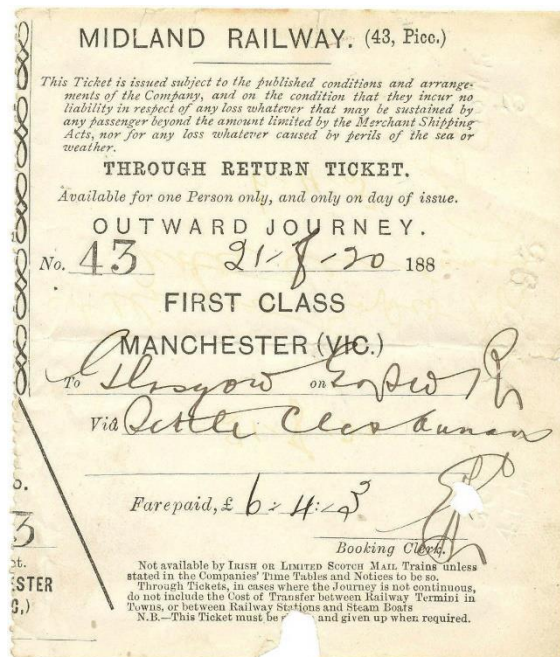 MIDLAND RAILWAY. (43, Picc.)
This Ticket is issued subject to the published conditions and arrange-
ments of the Company, and on the condition that they incur no
liability in respect of any loss whatever that may be sustained by
any passenger beyond the amount limited by the Merchant Shipping
Acts, nor for any loss whatever caused by perils of the sea or
weather.
THROUGH RETURN TICKET.
Available for one Person only, and only on day of issue.
OUTWARD JOURNEY.
No. 43 21-8-20 188
FIRST CLASS
MANCHESTER (VIC.)
To Glasgow on
Via Settle
Farepaid, £ 6:4:3
Booking Clerk.
3
ESTER
Not available by IRISH OR LIMITED SCOTCH MAIL Trains unless
stated in the Companies' Time Tables and Notices to be so.
Through Tickets, in cases where the Journey is not continuous,
do not include the Cost of Transfer between Railway Termini in
Towns, or between Railway Stations and Steam Boats
N.B.—This Ticket must be and given up when required.